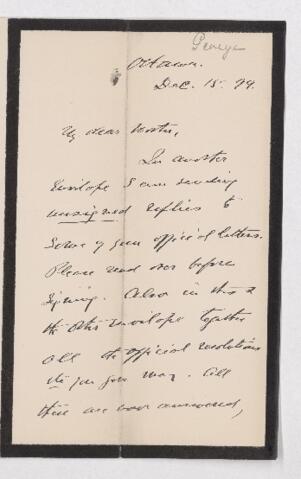 George
Ottawa.
Dec. 15. 99.
My dear
In another
Envelope I am sending
unsigned replies to
some of your official letters.
Please read over before
signing. Also in this &
the other envelope together
all the official resolutions
you gave May. All
these are now answered,